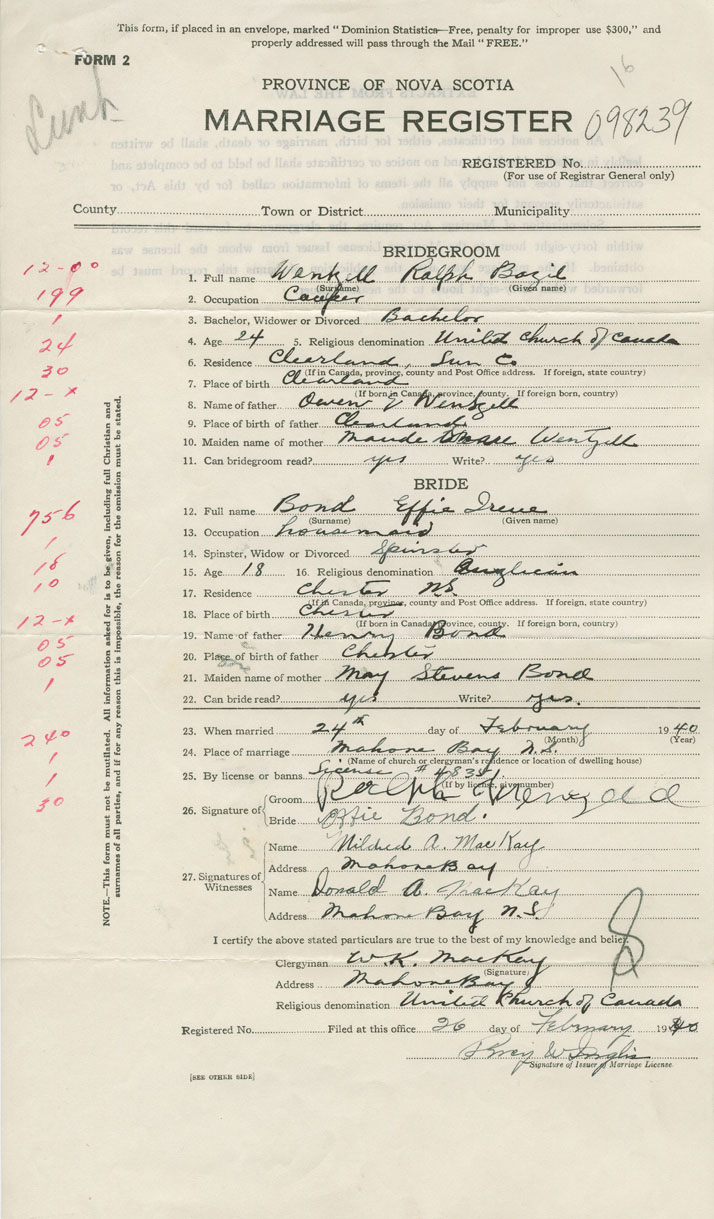 This form, if placed in an envelope, marked "Dominion Statistics—Free, penalty for improper use $300," and
properly addressed will pass through the Mail "FREE."
FORM 2
16
Lunb
PROVINCE OF NOVA SCOTIA
MARRIAGE REGISTER 098239
REGISTERED No.
(For use of Registrar General only)
County Town or District Municipality
BRIDEGROOM
12-00
1. Full name Wentzell Ralph Bazil
(Surname) (Given name)
199
2. Occupation
1
3. Bachelor, Widower or Divorced Bachelor
24
4. Age 24 5. Religious denomination United Church of Canada
30
6. Residence Clearland, Lun Co
(If in Canada, province, county and Post Office address. If foreign, state country)
12-x
7. Place of birth Clearland
(If born in Canada, province, county. If foreign born, country)
8. Name of father Owen J Wentzell
05
9. Place of father Clearland
05
10. Maiden name of mother Maude Wentzell
1
11. Can bridegroom read? yes Write? yes
BRIDE
756
12. Full name Bond Effie Irene
(Surname) (Given name)
13. Occupation housemaid
1
14. Spinster, Widow or Divorced Spinster
18
15. Age 18 16. Religious denomination Anglican
10
17. Residence Chester NS.
(If in Canada, province, county and Post Office address. If foreign, state country)
12-x
18. Place of birth Chester
(If born in Canada, province, county. If foreign born, country)
19. Name of father Henry Bond
05
20. Place of birth of father Chester
05
21. Maiden name of mother May Stevens Bond
1
22. Can bride read? yes Write? yes.
240
23. When married 24th day of February 1940
(Month) (Year)
1
24. Place of marriage Mahone Bay N.S.
(Name of church or clergyman's residence or location of dwelling house)
1
25. By license or banns License #
(If by license, give number)
30
26. Signature of Groom Ralph
Bride Effie Bond.
27. Signatures of Witnesses
Name Mildred A. MacKay
Address Mahone Bay
Name Donald A. MacKay
Address Mahone Bay N.S.
I certify the above stated particulars are true to the best of my knowledge and belief.
Clergyman W.K. MacKay
(Signature)
Address Mahone Bay
Religious denomination United Church of Canada
Registered No. Filed at this office 26 day of February 1940
W Inglis
Signature of Issuer of Marriage License.
[SEE OTHER SIDE]
NOTE.—This form must not be mutilated. All information asked for is to be given, including full Christian and
surnames of all parties, and if for any reason this is impossible, the reason for the omission must be stated.